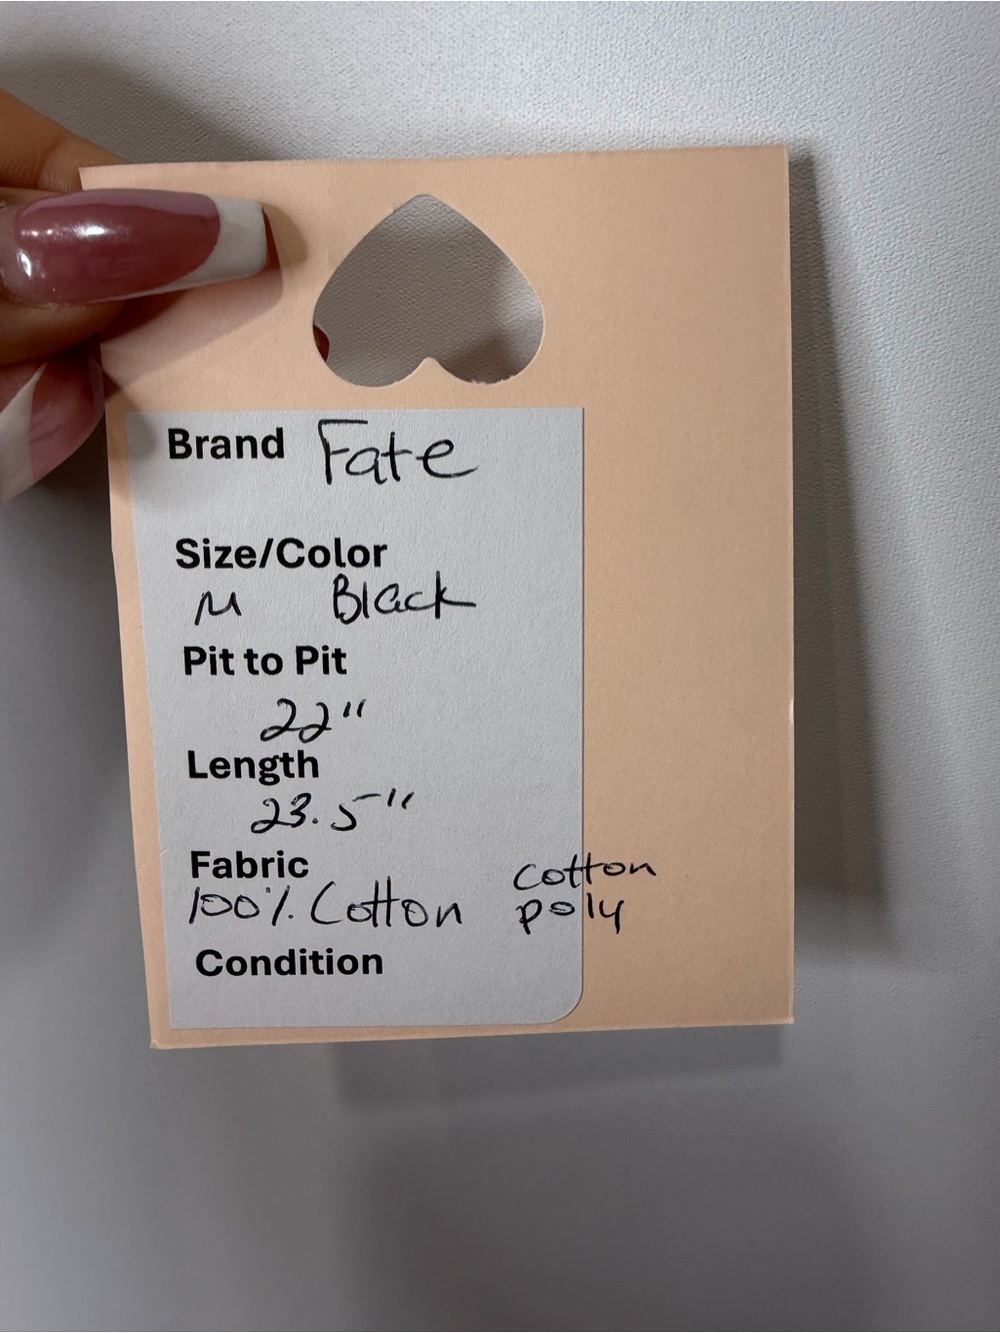 Brand Fate
Size/Color
M Black
Pit to Pit
22"
Length
23.5"
Fabric
100% Cotton cotton poly
Condition